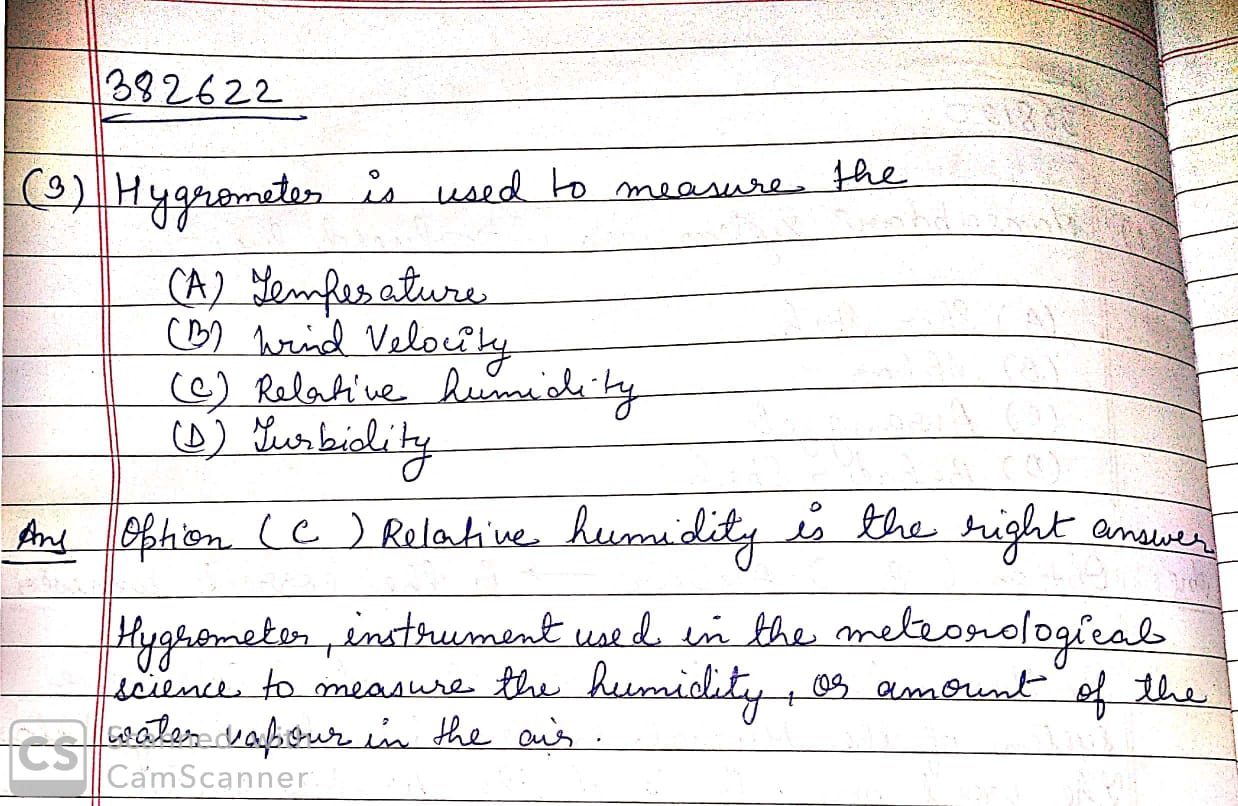 382622
(3) Hygrometer is used to measure the
(A) Temperature
(B) Wind Velocity
(C) Relative humidity
(D) Turbidity
Ans Option (C) Relative humidity is the right answer
Hygrometer, instrument used in the meteorological
science to measure the humidity, or amount of the
water vapour in the air.
CS Scanned with
CamScanner